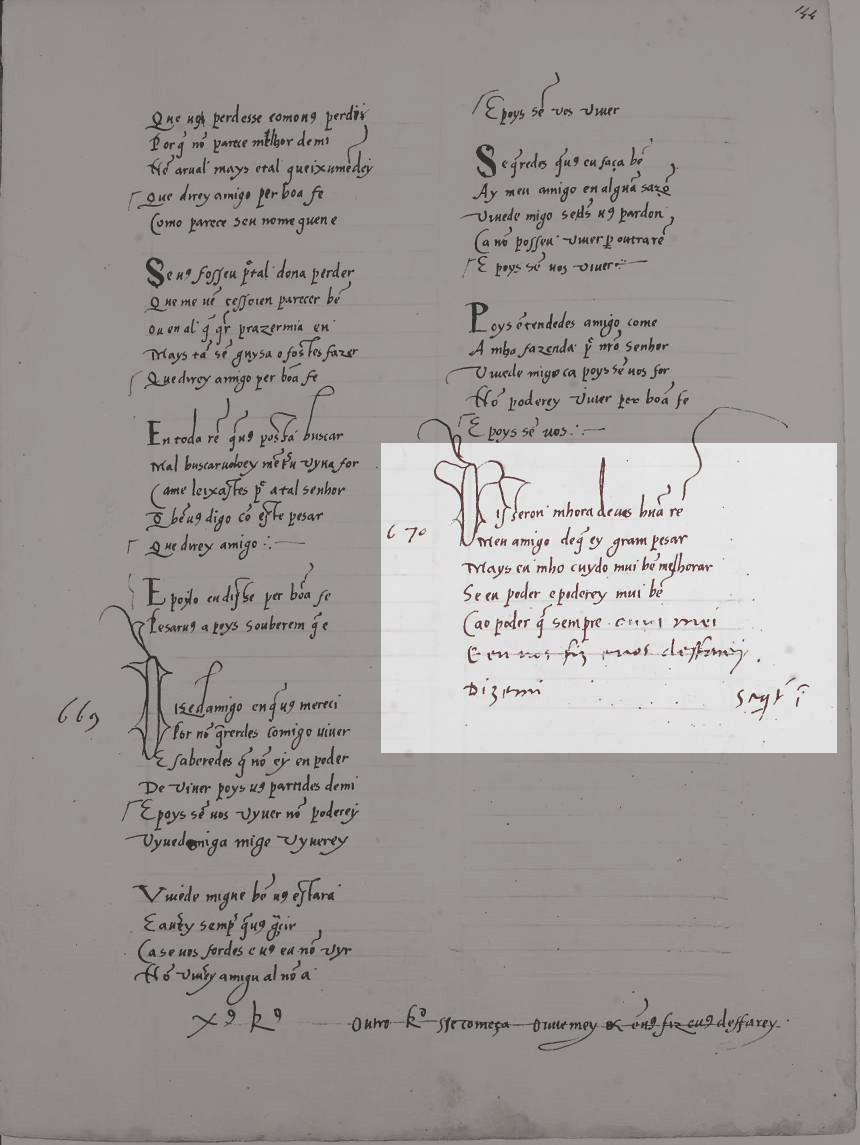 144
Que uꝯ perdesse comouꝯ perdi
Por q̄ nō parece melhor demi
Nō aruai mays etal queixumedey
Que direy amigo per boa fe
Como parece seu nome quen e
Se uꝯ fosseu p̃tal dona perder
Que me uē cessoien parecer bē
ou en al q̄ q̄r prazermia en
Mays tā sē guysa o fostes fazer
Que direy amigo per bōa fe
En toda rē q̄uꝯ possa buscar
Mal buscaruoloey mētru vyua for
Came leixastes p̃ atal senhor
Q bēuꝯ digo cō este pesar
Que direy amigo
E poylo eu disse per bōa fe
Pesaruꝯ a poys souberem q̄ e
669
Dizedamigo enq̄uꝯ mereci
Por nō q̄rerdes comigo uiuer
E saberedes q̄ nō ey en poder
De viuer poys uꝯ partides demi
E poys sē uos vyuer nō poderey
Vyuedamiga migo vyuerey
Viuede migue bē uꝯ estara
E aurey semp̃ q̄uꝯ gr̃cir
Ca se uos fordes e uꝯ eu nō vyr
Nō viu̅ey amigu al nō a
E poys sē uos viuer
Se q̄redes q̄uꝯ eu faça bē
Ay meu amigo en algūa sazō
Viuede migo se uꝯ pardon
Ca nō posseu viuer p̱ outra rē
E poys sē uos viuer
Poys ētendedes amigo come
A mha fazenda p̃ nr̃o senhor
Viuede migo ca poys sē uos for
Nō poderey viuer per boa fe
E poys sē uos
670
Disseron mhora deuos hūa rē
Meu amigo deq̄ ey gram pesar
Mays eu mho cuydo mui bē melhorar
Se eu poder e poderey mui bē
Cao poder q̄ sempre ouui mei
E eu uos fiz e uos desfarey
Dizemi
xꝯ kꝯ Outro kº sse começa Ouuemey E ēuꝯ fiz euꝯ desfarey